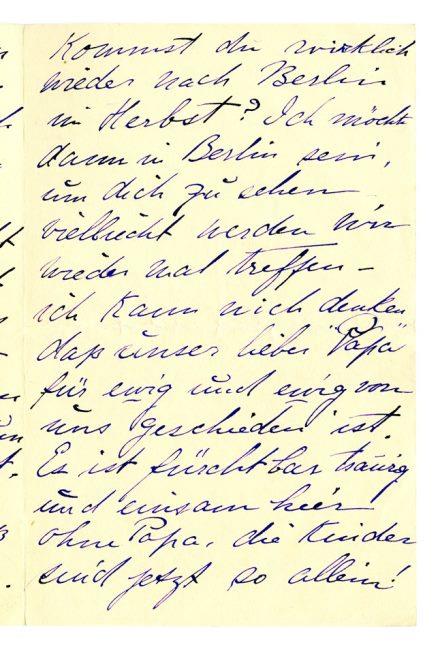 Kommst du wirklich
wieder nach Berlin
im Herbst? Ich möcht
dann in Berlin sein,
um dich zu sehen
vielleicht werden wir
wieder mal treffen –
ich kann nich denken
daß unser lieber "Papa"
für ewig und ewig von
uns geschieden ist.
Es ist fürchtbar traurig
und einsam hier
ohne Papa, die Kinder
sind jetzt so allein!